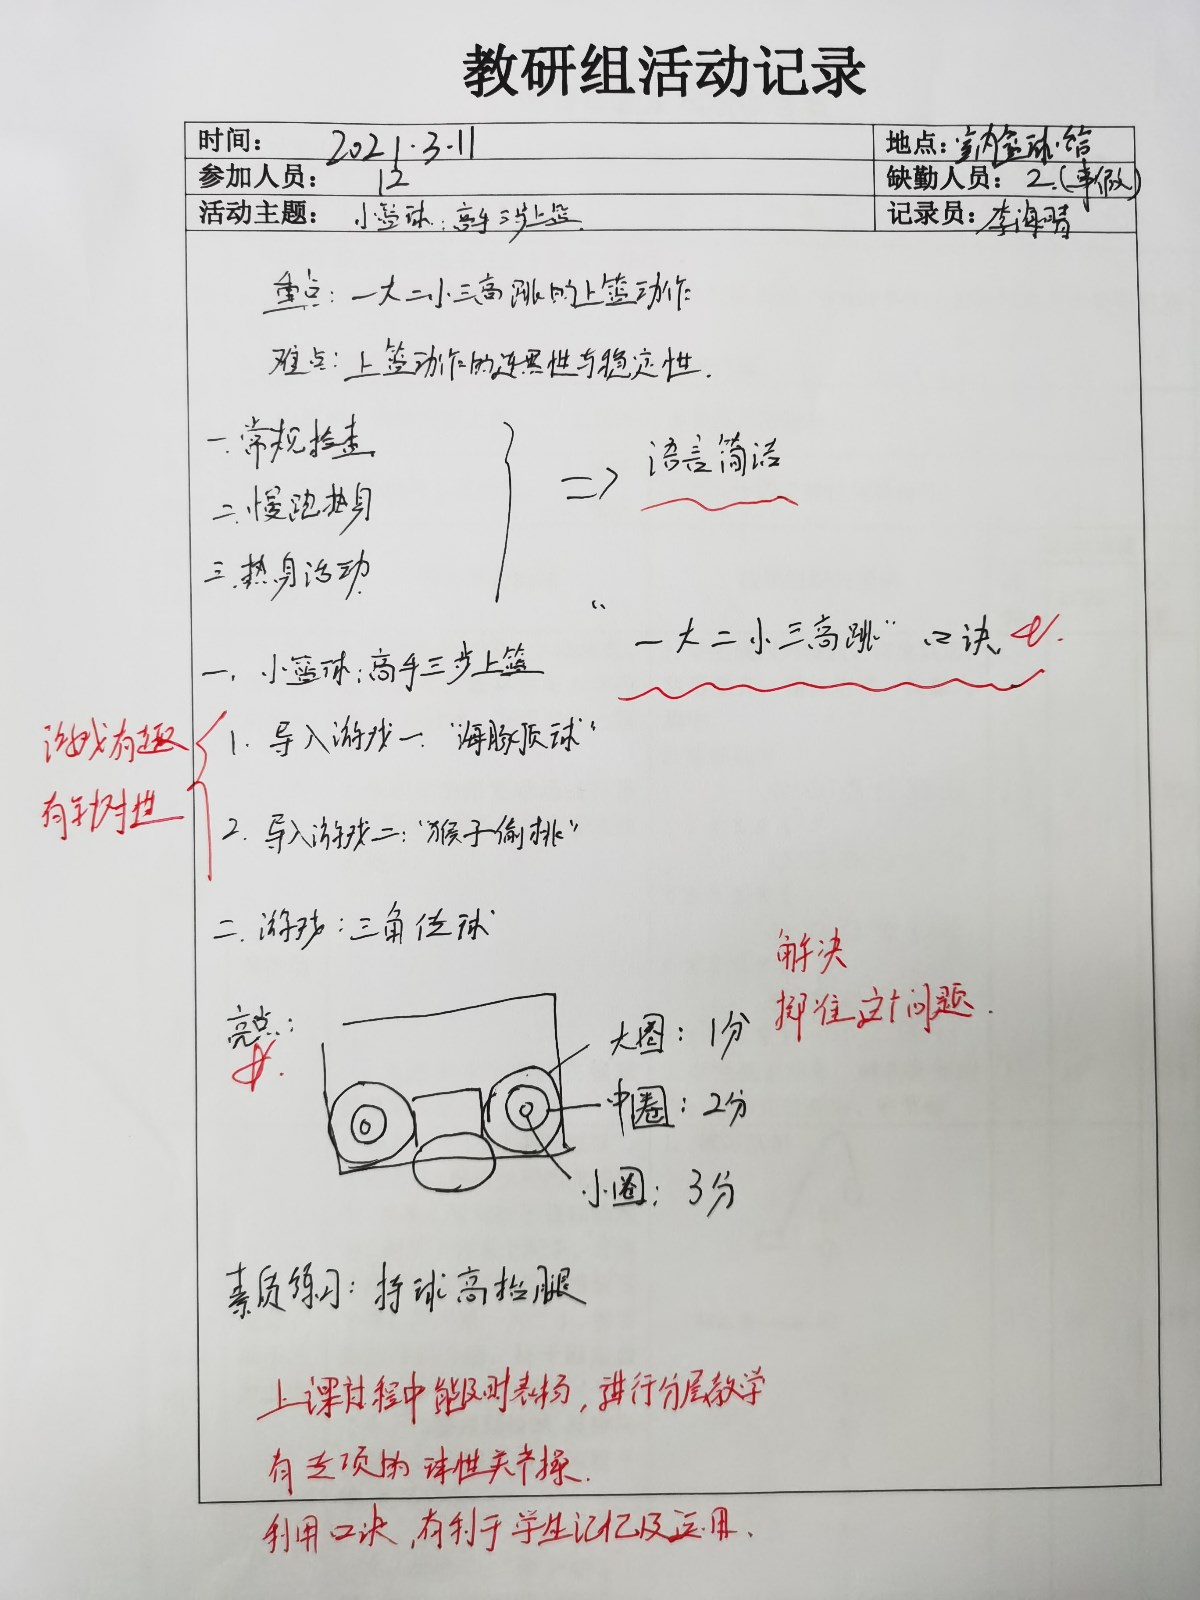 教研组活动记录
时间： 2021.3.11 地点：室内篮球馆
参加人员： 12 缺勤人员： 2.（事假）
活动主题： 小篮球：高手三步上篮 记录员：李海晴
重点：一大二小三高跳的上篮动作
难点：上篮动作的连贯性与稳定性.
一.常规检查
二.慢跑热身
三.热身活动
=> 语言简洁
“一大二小三高跳” 口诀
一. 小篮球：高手三步上篮
1. 导入游戏一. “海豚顶球”
2. 导入游戏二：“猴子偷桃”
游戏有趣
有针对性
二. 游戏：三角传球
解决
掷准这个问题.
亮点：
大圈：1分
中圈：2分
小圈：3分
素质练习：持球高抬腿
上课过程中能及时表扬，进行分层教学
有专项的球性关节操.
利用口诀，有利于学生记忆及运用.